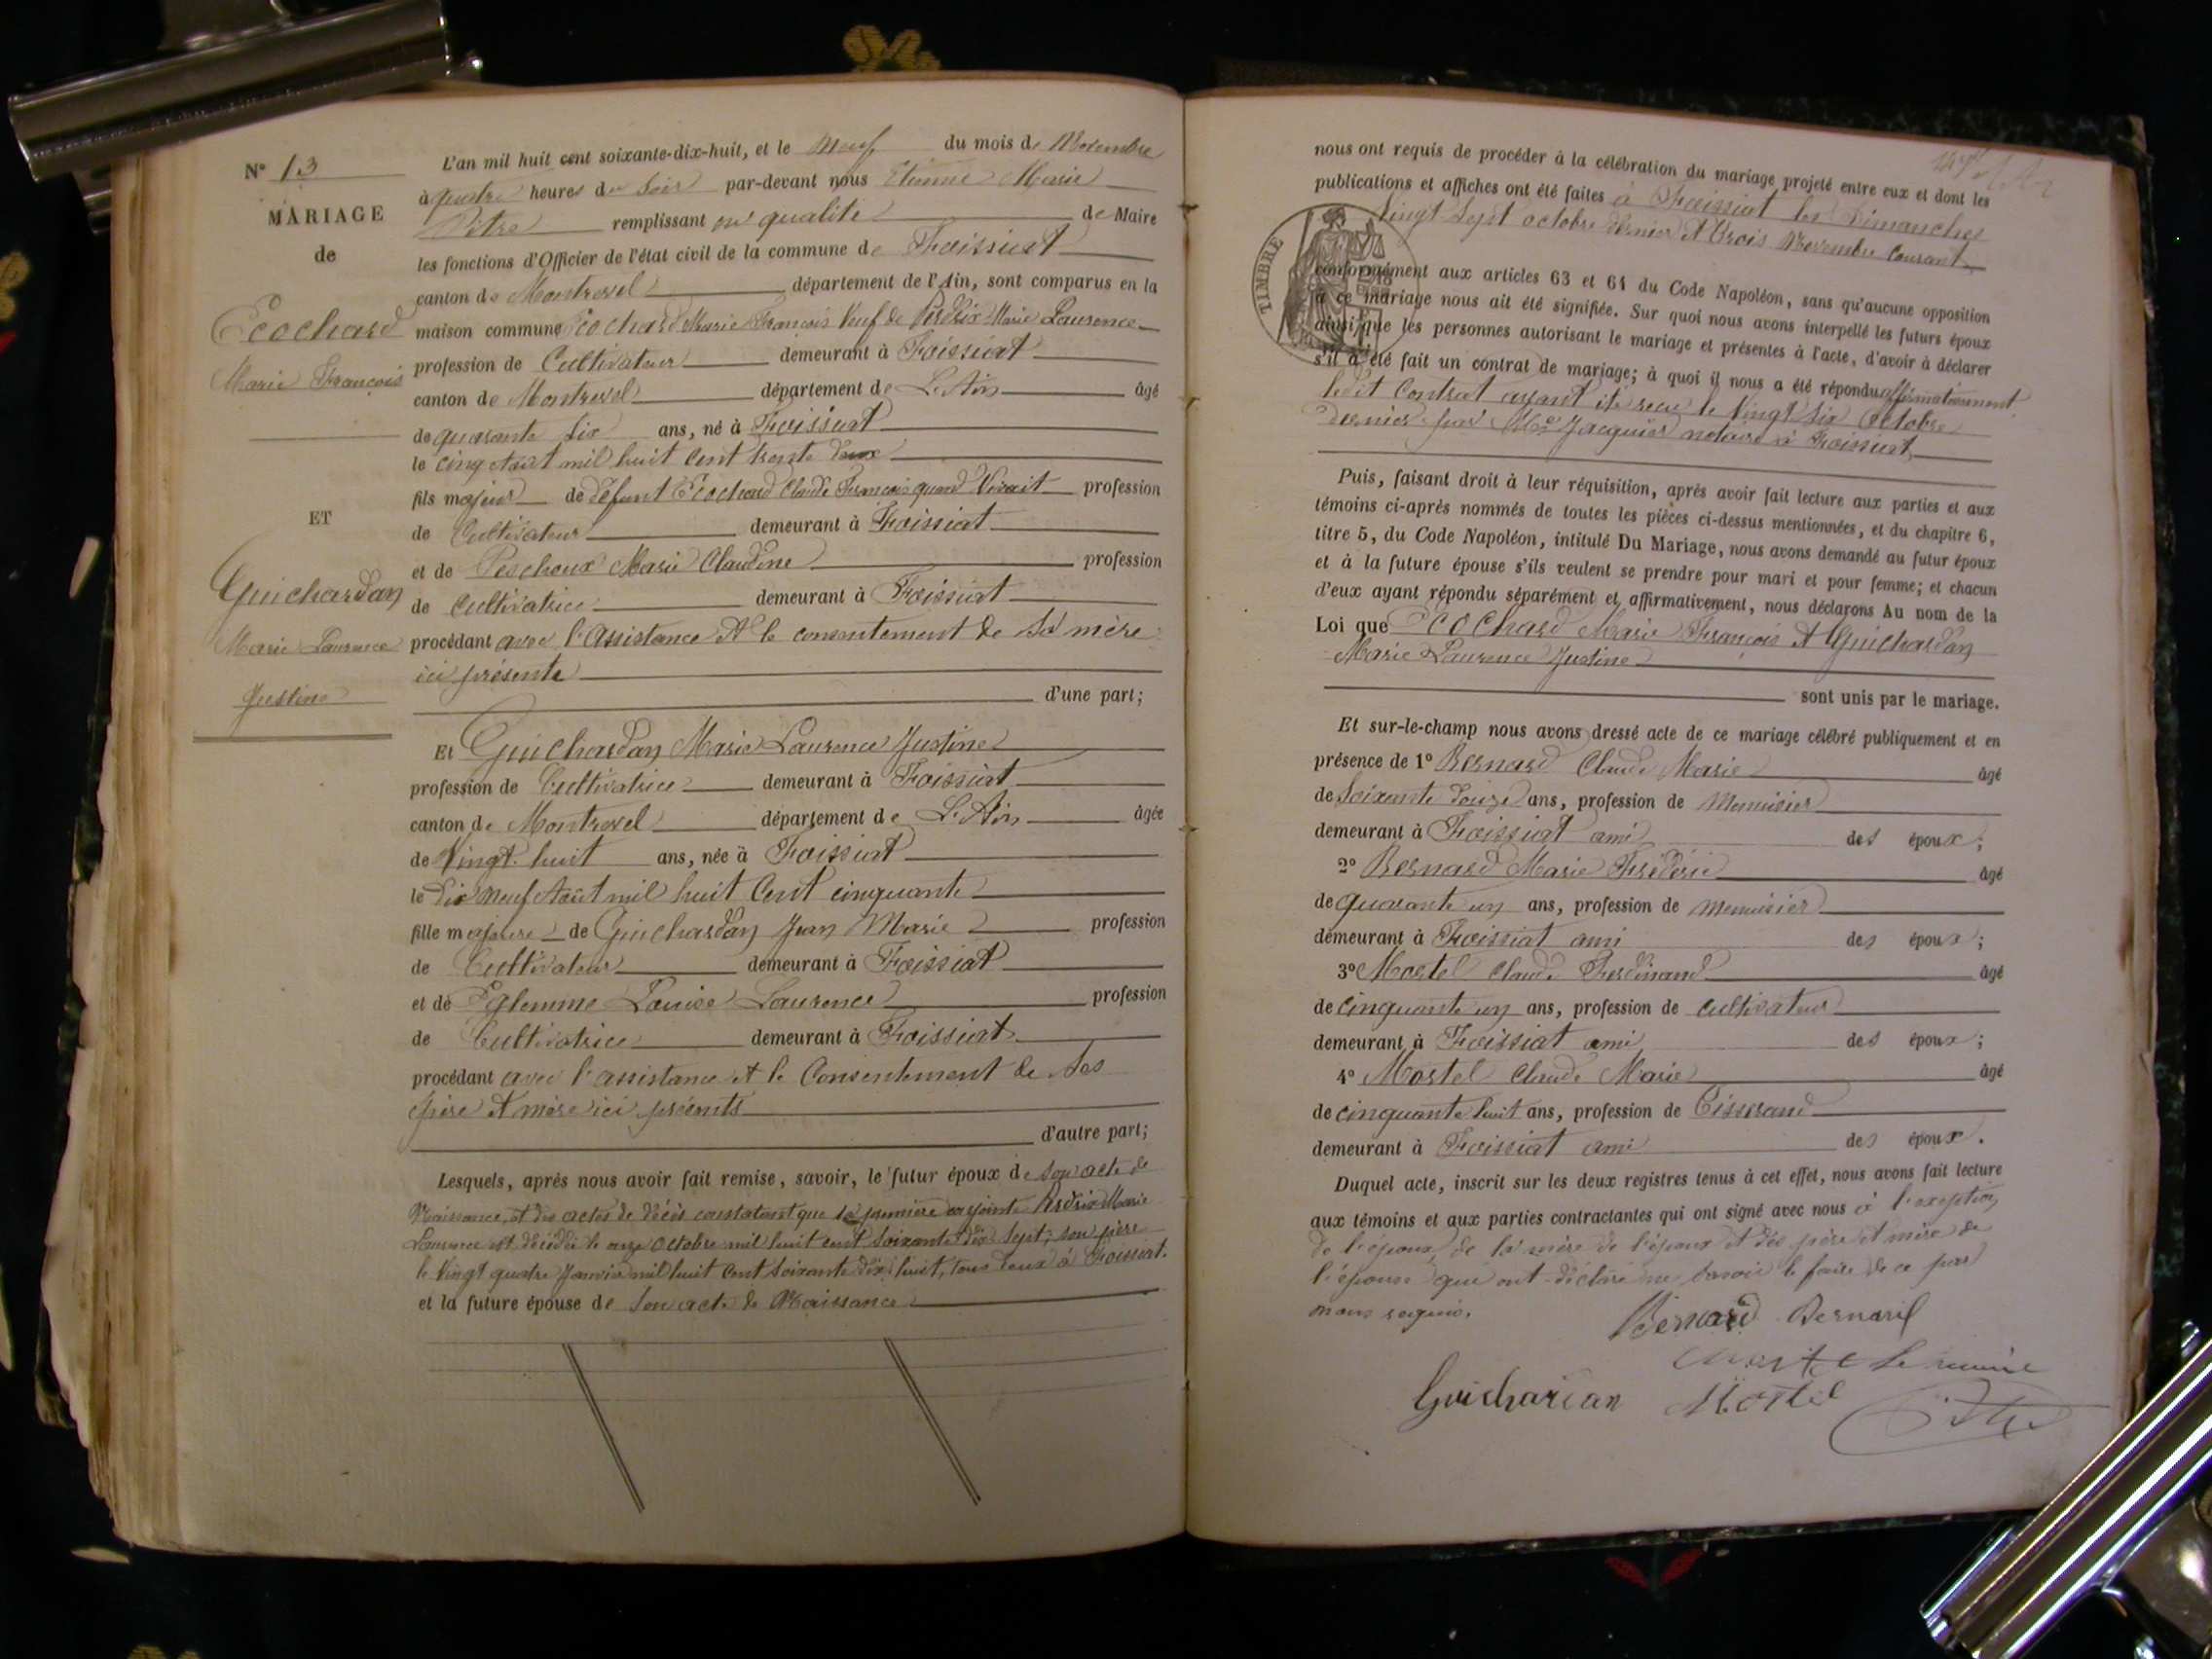 N° 13
MARIAGE
de
Ecochard
Marie François
ET
Guichardan
Marie Laurence
Justine
L'an mil huit cent soixante-dix-huit, et le Neuf du mois de Novembre
à quatre heures du Soir par-devant nous Etienne Marie
Pitre remplissant en qualité de Maire
les fonctions d'Officier de l'état civil de la commune de Foissiat
canton de Montrevel département de l'Ain, sont comparus en la
maison commune Ecochard Marie François Veuf de Perdrix Marie Laurence
profession de Cultivateur demeurant à Foissiat
canton de Montrevel département de L'Ain âgé
de quarante six ans, né à Foissiat
le cinq Août mil huit cent trente deux
fils majeur de défunt Ecochard Claude François quand Vivait profession
de Cultivateur demeurant à Foissiat
et de Peschoux Marie Claudine profession
de Cultivatrice demeurant à Foissiat
procédant avec l'assistance et le consentement de sa mère
ici présente
d'une part;
Et Guichardan Marie Laurence Justine
profession de Cultivatrice demeurant à Foissiat
canton de Montrevel département de L'Ain âgée
de Vingt huit ans, née à Foissiat
le Dix Neuf Août mil huit Cent cinquante
fille majeure de Guichardan Jean Marie profession
de Cultivateur demeurant à Foissiat
et de Eglemme Louise Laurence profession
de Cultivatrice demeurant à Foissiat
procédant avec l'assistance et le Consentement de Ses
père et mère ici présents
d'autre part;
Lesquels, après nous avoir fait remise, savoir, le futur époux de son acte de
Naissance, et des actes de décès constatant que sa première conjointe Perdrix Marie
Laurence est décédée le onze Octobre mil huit cent soixante dix Sept, son père
le Vingt quatre Janvier mil huit Cent soixante dix huit, tous deux à Foissiat.
et la future épouse de Son acte de Naissance
nous ont requis de procéder à la célébration du mariage projeté entre eux et dont les
publications et affiches ont été faites à Foissiat les Dimanches
Vingt Sept octobre dernier et trois Novembre Courant
TIMBRE
conformément aux articles 63 et 64 du Code Napoléon, sans qu'aucune opposition
à ce mariage nous ait été signifiée. Sur quoi nous avons interpellé les futurs époux
ainsi que les personnes autorisant le mariage et présentes à l'acte, d'avoir à déclarer
s'il a été fait un contrat de mariage; à quoi il nous a été répondu affirmativement
ledit Contrat ayant été reçu le Vingt six Octobre
dernier par Me Jacquier notaire à Foissiat
Puis, faisant droit à leur réquisition, après avoir fait lecture aux parties et aux
témoins ci-après nommés de toutes les pièces ci-dessus mentionnées, et du chapitre 6,
titre 5, du Code Napoléon, intitulé Du Mariage, nous avons demandé au futur époux
et à la future épouse s'ils veulent se prendre pour mari et pour femme; et chacun
d'eux ayant répondu séparément et affirmativement, nous déclarons Au nom de la
Loi que Ecochard Marie François et Guichardan
Marie Laurence Justine
sont unis par le mariage.
Et sur-le-champ nous avons dressé acte de ce mariage célébré publiquement et en
présence de 1° Bernard Claude Marie âgé
de Soixante douze ans, profession de Menuisier
demeurant à Foissiat ami des époux;
2° Bernard Marie Fréderic âgé
de quarante un ans, profession de menuisier
demeurant à Foissiat ami des époux;
3° Mortel Claude Ferdinand âgé
de cinquante un ans, profession de cultivateur
demeurant à Foissiat ami des époux;
4° Mortel Claude Marie âgé
de cinquante huit ans, profession de Tisserand
demeurant à Foissiat ami des époux.
Duquel acte, inscrit sur les deux registres tenus à cet effet, nous avons fait lecture
aux témoins et aux parties contractantes qui ont signé avec nous à l'exception
de l'époux, de la mère de l'époux et des père et mère de
l'épouse qui ont déclaré ne savoir le faire de ce par
nous requis.
Bernard Bernard
Le maire
Guichardan Mortel